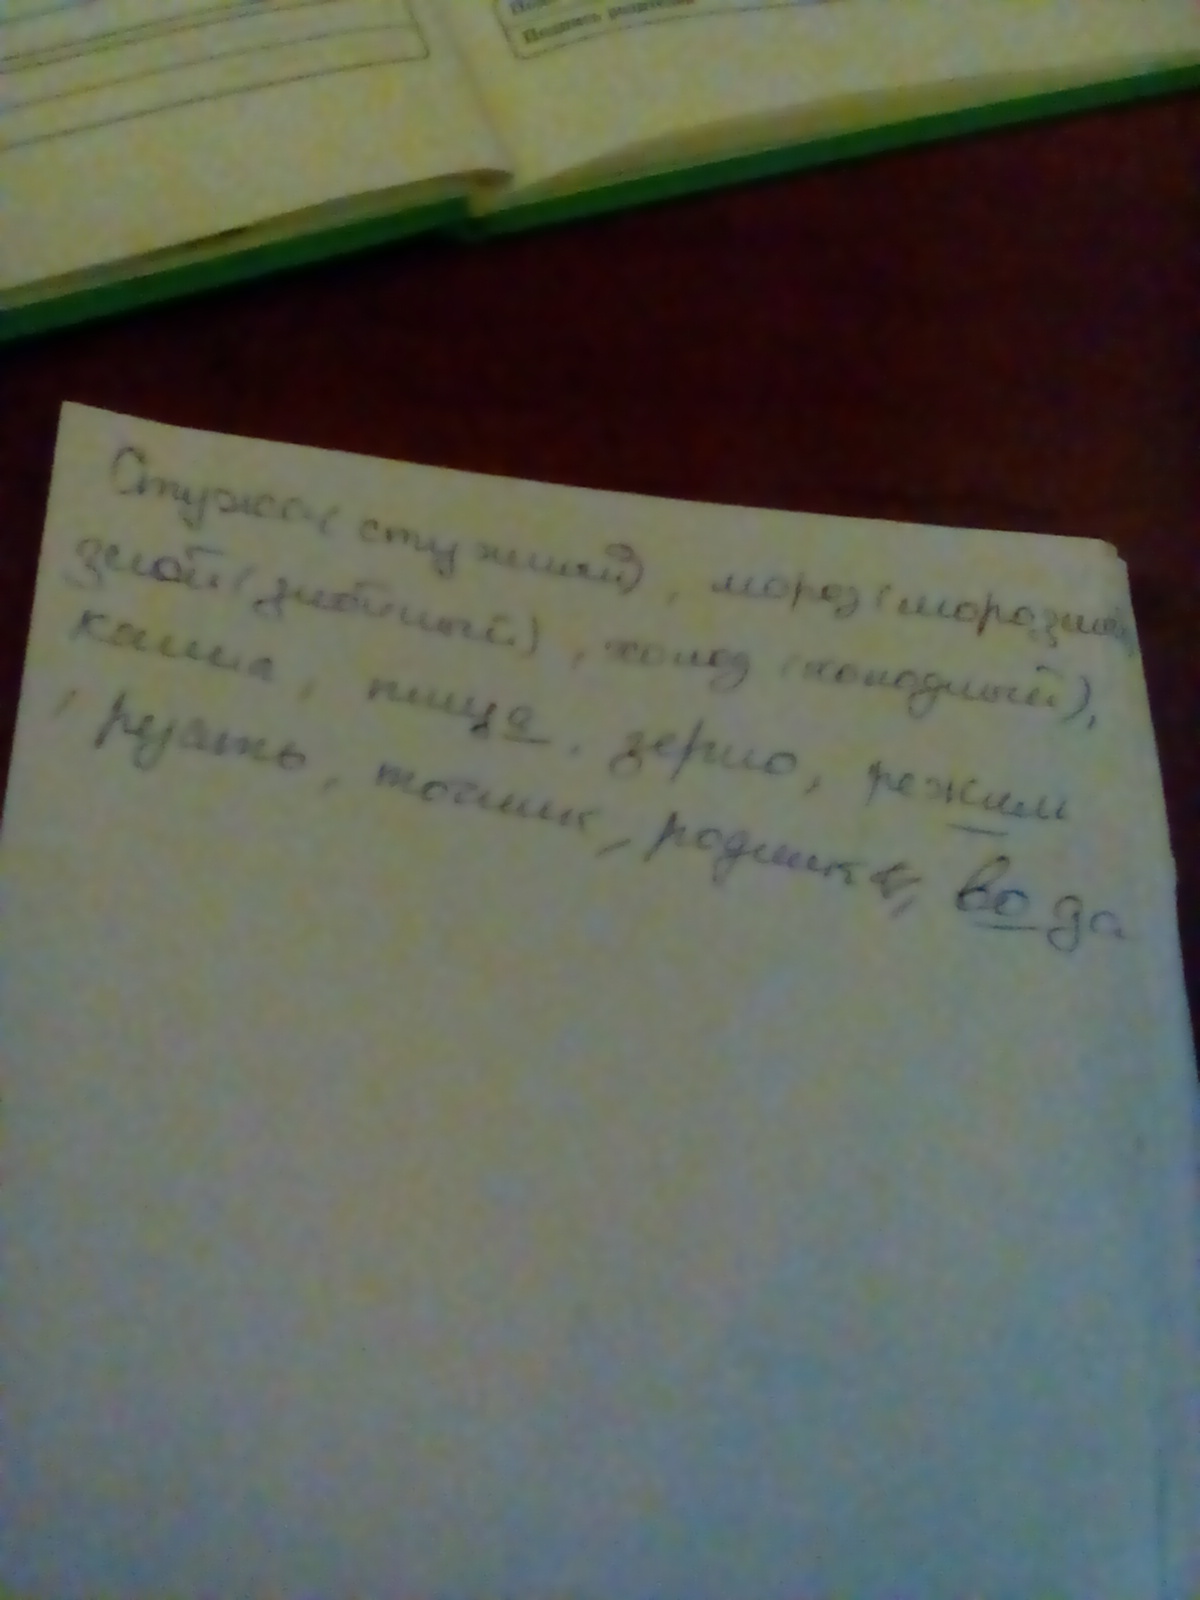 Подпись родителей
Стужа (стужный), мороз (морозный
зной (знойный), холод (холодный),
каша, пища, зерно, режим
, резать, точник, родник, вода